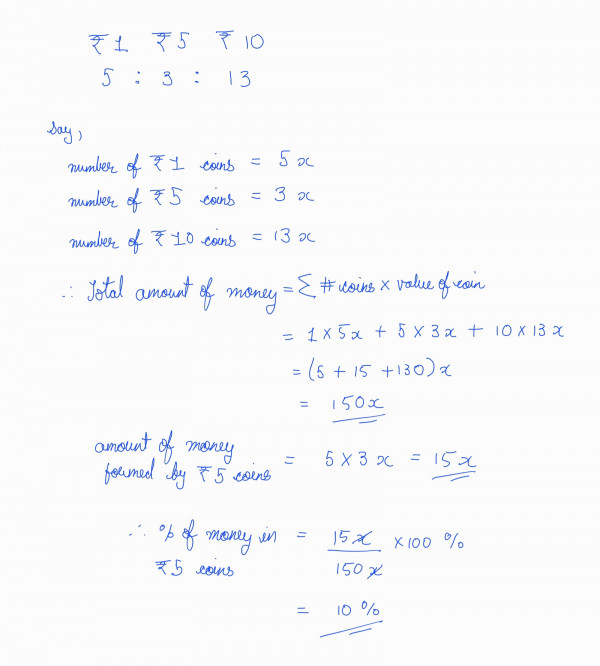 ₹1 ₹5 ₹10
5 : 3 : 13
Say,
number of ₹1 coins = 5x
number of ₹5 coins = 3x
number of ₹10 coins = 13x
∴ Total amount of money = Σ #coins × value of coin
= 1 × 5x + 5 × 3x + 10 × 13x
= (5 + 15 + 130)x
= 150x
amount of money
formed by ₹5 coins = 5 × 3x = 15x
∴ % of money in
₹5 coins = 15x / 150x × 100 %
= 10 %